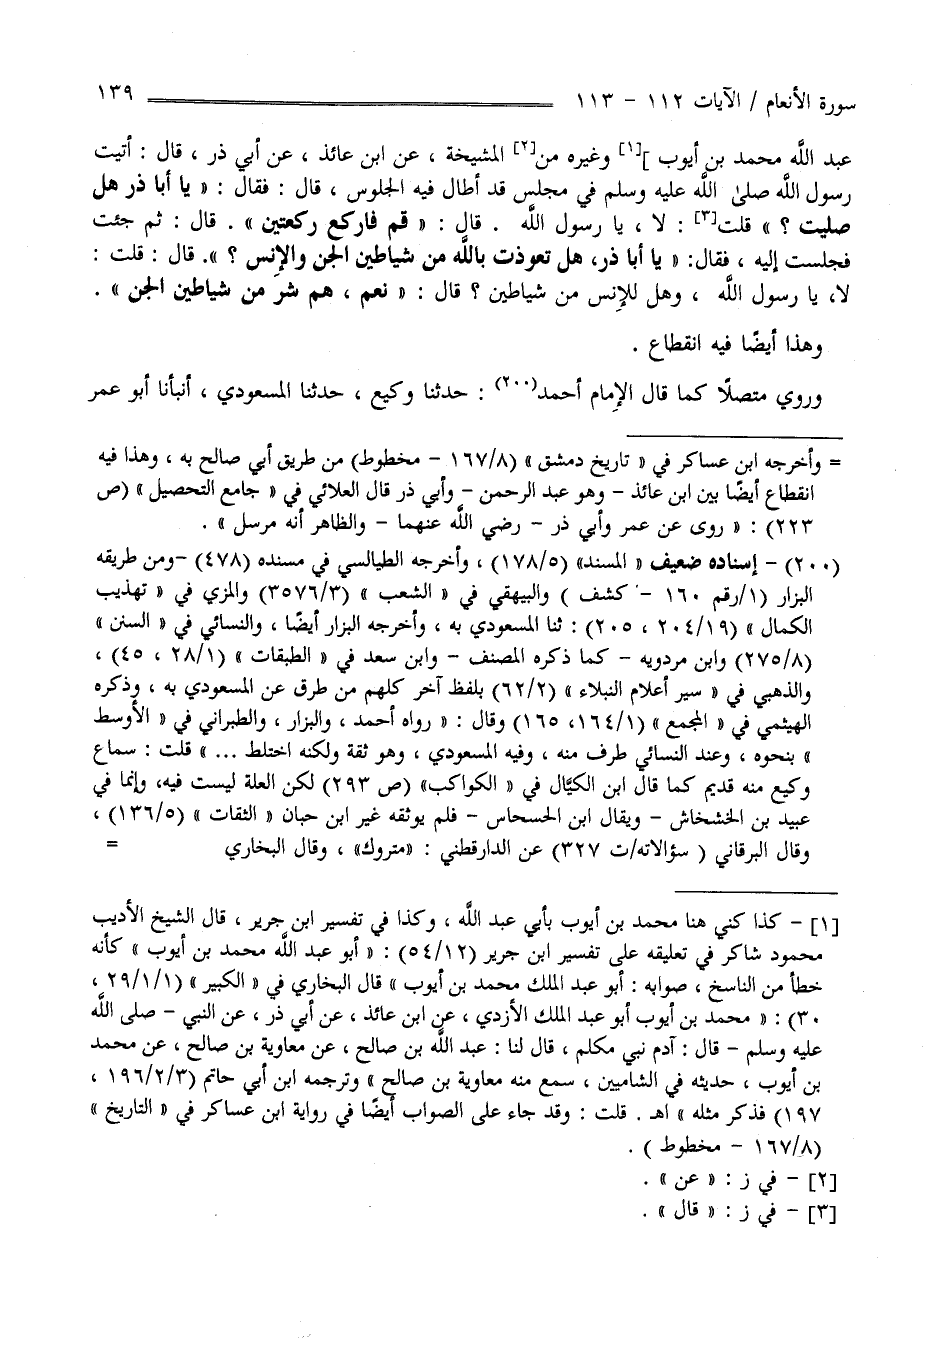 سورة الأنعام / الآيات ١١٢ - ١١٣ ١٣٩
عبد الله محمد بن أيوب ][١] وغيره من[٢] المشيخة ، عن ابن عائذ ، عن أبي ذر ، قال : أتيت
رسول الله صلى الله عليه وسلم في مجلس قد أطال فيه الجلوس ، قال : فقال : « يا أبا ذر هل
صليت ؟ » قلت[٣] : لا ، يا رسول الله . قال : « قم فاركع ركعتين » . قال : ثم جئت
فجلست إليه ، فقال: « يا أبا ذر، هل تعوذت بالله من شياطين الجن والإنس ؟ ». قال : قلت :
لا، يا رسول الله ، وهل للإنس من شياطين ؟ قال : « نعم ، هم شر من شياطين الجن » .
وهذا أيضًا فيه انقطاع .
وروي متصلًا كما قال الإمام أحمد(٢٠٠) : حدثنا وكيع ، حدثنا المسعودي ، أنبأنا أبو عمر
= وأخرجه ابن عساكر في « تاريخ دمشق » (١٦٧/٨ - مخطوط) من طريق أبي صالح به ، وهذا فيه
انقطاع أيضًا بين ابن عائذ - وهو عبد الرحمن - وأبي ذر قال العلائي في « جامع التحصيل » (ص
٢٢٣) : « روى عن عمر وأبي ذر - رضي الله عنهما - والظاهر أنه مرسل » .
(٢٠٠) - إسناده ضعيف « المسند» (١٧٨/٥) ، وأخرجه الطيالسي في مسنده (٤٧٨) -ومن طريقه
البزار (١/رقم ١٦٠ - كشف ) والبيهقي في « الشعب » (٣٥٧٦/٣) والمزي في « تهذيب
الكمال » (٢٠٤/١٩ ، ٢٠٥) : ثنا المسعودي به ، وأخرجه البزار أيضًا ، والنسائي في « السنن »
(٢٧٥/٨) وابن مردويه - كما ذكره المصنف - وابن سعد في « الطبقات » (٢٨/١ ، ٤٥) ،
والذهبي في « سير أعلام النبلاء » (٦٢/٢) بلفظ آخر كلهم من طرق عن المسعودي به ، وذكره
الهيثمي في « المجمع » (١٦٤/١، ١٦٥) وقال : « رواه أحمد ، والبزار ، والطبراني في « الأوسط
» بنحوه ، وعند النسائي طرف منه ، وفيه المسعودي ، وهو ثقة ولكنه اختلط ... » قلت : سماع
وكيع منه قديم كما قال ابن الكيَّال في « الكواكب» (ص ٢٩٣) لكن العلة ليست فيه، وإنما في
عبيد بن الخشخاش - ويقال ابن الحسحاس - فلم يوثقه غير ابن حبان « الثقات » (١٣٦/٥) ،
وقال البرقاني ( سؤالاته/ت ٣٢٧) عن الدارقطني : «متروك» ، وقال البخاري =
[١] - كذا كني هنا محمد بن أيوب بأبي عبد الله ، وكذا في تفسير ابن جرير ، قال الشيخ الأديب
محمود شاكر في تعليقه على تفسير ابن جرير (٥٤/١٢) : « أبو عبد الله محمد بن أيوب » كأنه
خطأ من الناسخ ، صوابه : أبو عبد الملك محمد بن أيوب » قال البخاري في « الكبير » (٢٩/١/١ ،
٣٠) : « محمد بن أيوب أبو عبد الملك الأزدي ، عن ابن عائذ ، عن أبي ذر ، عن النبي - صلى الله
عليه وسلم - قال : آدم نبي مكلم ، قال لنا : عبد الله بن صالح ، عن معاوية بن صالح ، عن محمد
بن أيوب ، حديثه في الشاميين ، سمع منه معاوية بن صالح » وترجمه ابن أبي حاتم (١٩٦/٢/٣ ،
١٩٧) فذكر مثله » اهـ . قلت : وقد جاء على الصواب أيضًا في رواية ابن عساكر في « التاريخ »
(١٦٧/٨ - مخطوط ) .
[٢] - في ز : « عن » .
[٣] - في ز : « قال » .